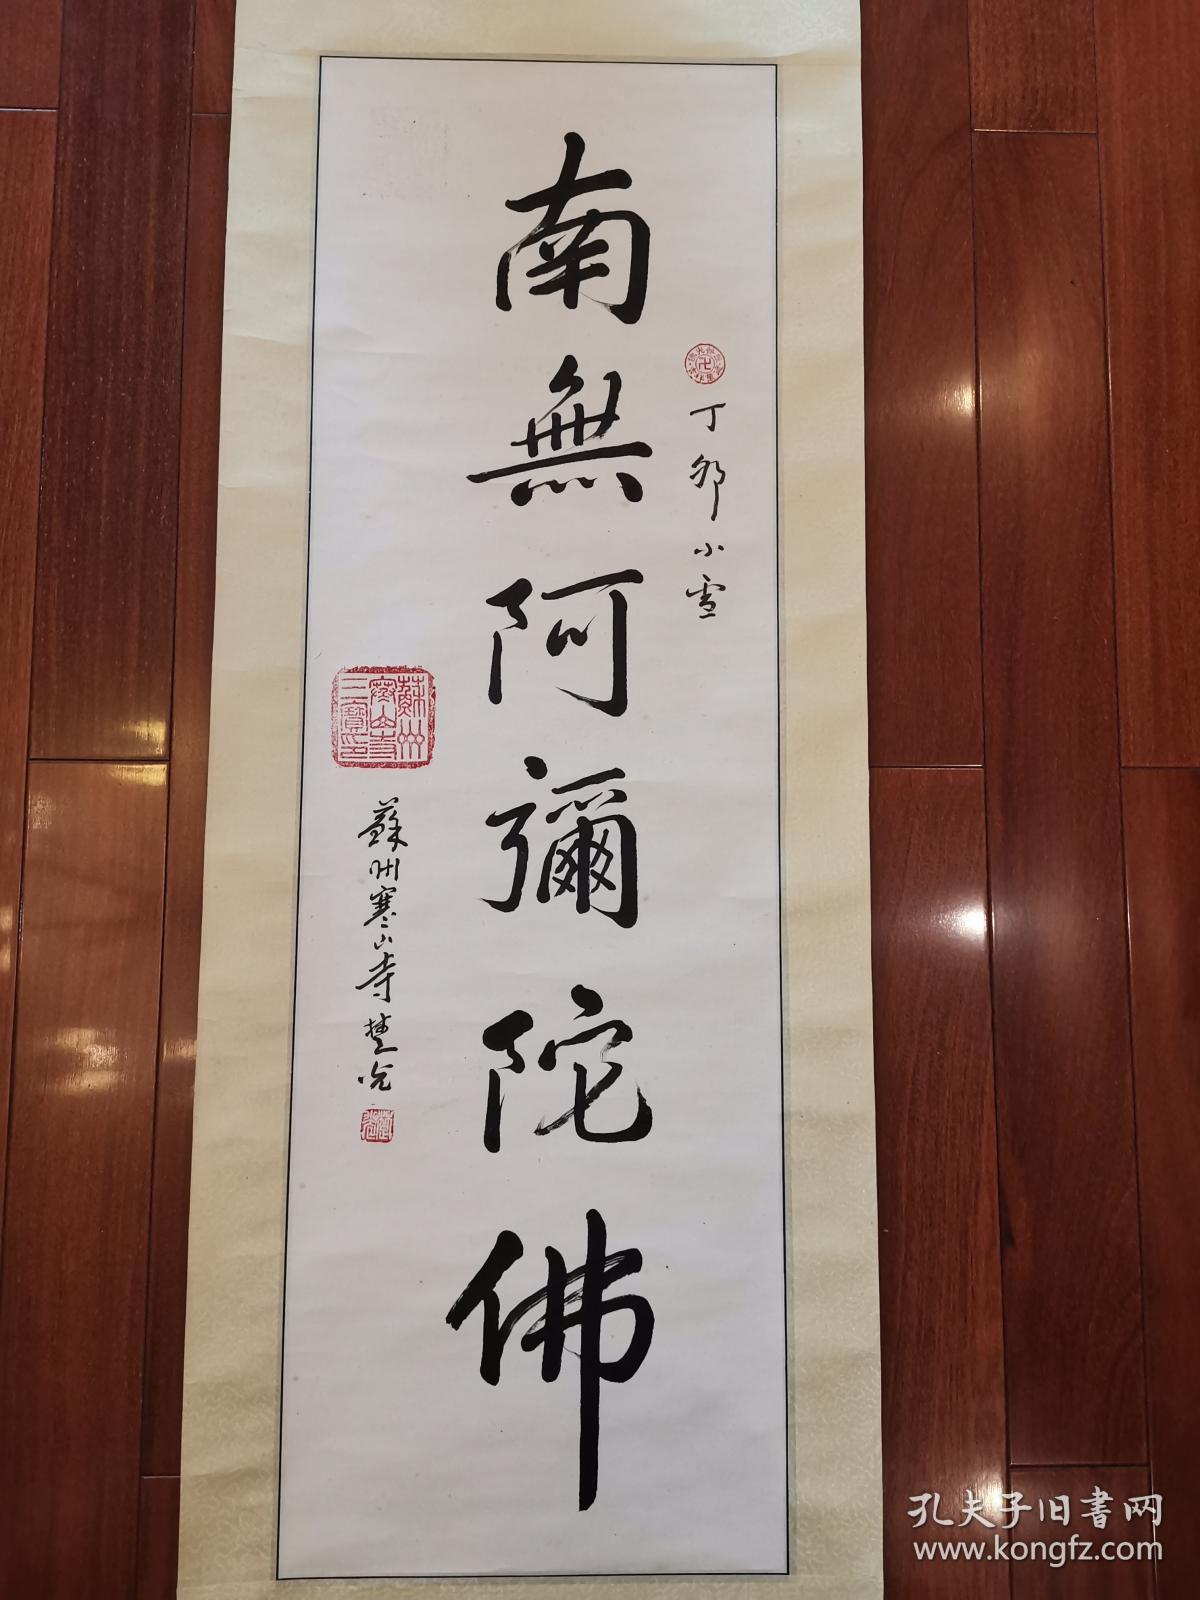 丁卯小雪
南無阿彌陀佛
蘇州寒山寺三寶印
蘇州寒山寺楚光
孔夫子旧书网
www.kongfz.com